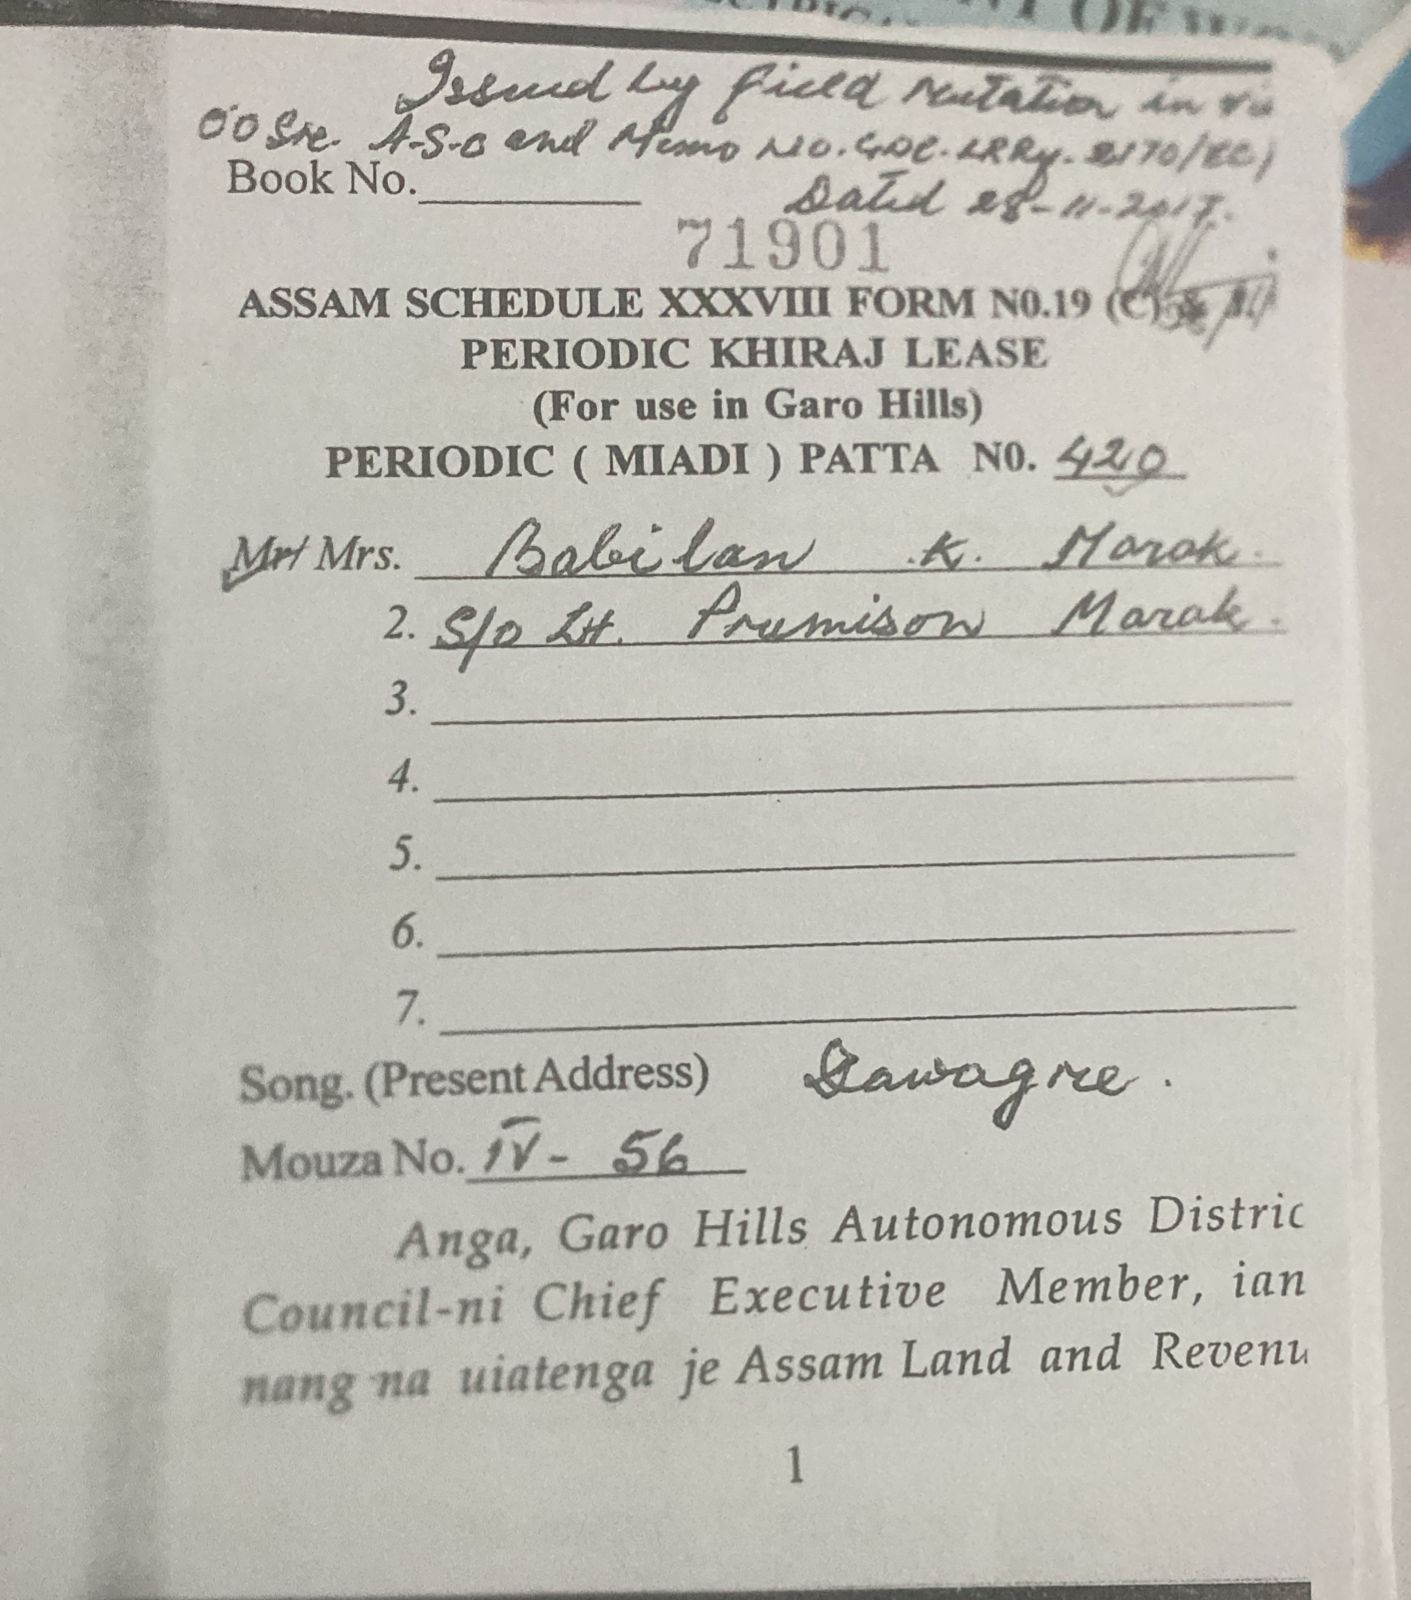 OF
Issued by field Mutation in
A.S.O and Memo No. GDC.LRRy. 2170/
Book No.
Dated 28-11-2017.
71901
ASSAM SCHEDULE XXXVIII FORM N0.19 (C)
PERIODIC KHIRAJ LEASE
(For use in Garo Hills)
PERIODIC ( MIADI ) PATTA N0. 420
Mr/ Mrs. Babilan .K. Marak.
2. S/o Lt. Premison Marak.
3.
4.
5.
6.
7.
Song. (Present Address) Dawagre.
Mouza No. IV - 56
Anga, Garo Hills Autonomous Distric
Council-ni Chief Executive Member, ian
nang na uiatenga je Assam Land and Revenu
1